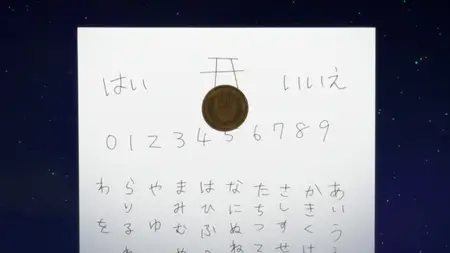 はい
いいえ
0 1 2 3 4 5 6 7 8 9
あいう
かきくけ
さしすせ
たちつて
なにぬね
はひふ
まみむ
や ゆ
らりる
わ を